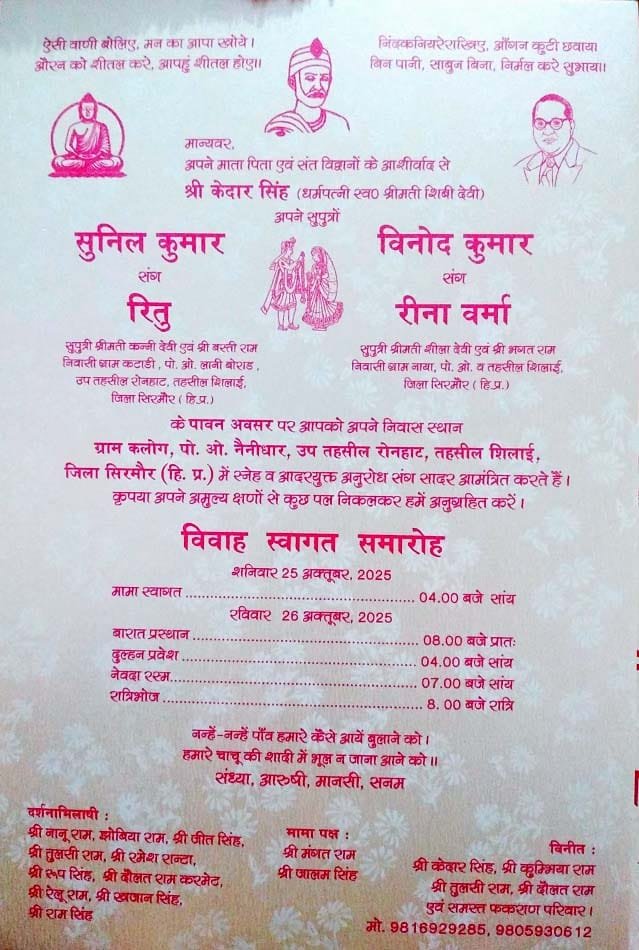 ऐसी वाणी बोलिए, मन का आपा खोये।
औरन को शीतल करे, आपहुं शीतल होए॥
निंदकनियरेराखिए, आँगन कुटी छवाया
बिन पानी, साबुन बिना, निर्मल करे सुभाय॥
मान्यवर,
अपने माता पिता एवं संत विद्वानों के आशीर्वाद से
श्री केदार सिंह (धर्मपत्नी स्व0 श्रीमती शिबी देवी)
अपने सुपुत्रों
सुनिल कुमार
संग
रितु
सुपुत्री श्रीमती कन्नी देवी एवं श्री बस्ती राम
निवासी ग्राम कटाडी, पो. ओ. लानी बोराड,
उप तहसील रोनहाट, तहसील शिलाई,
जिला सिरमौर (हि.प्र.)
विनोद कुमार
संग
रीना वर्मा
सुपुत्री श्रीमती शीला देवी एवं श्री भगत राम
निवासी ग्राम नाया, पो. ओ. व तहसील शिलाई,
जिला सिरमौर (हि.प्र.)
के पावन अवसर पर आपको अपने निवास स्थान
ग्राम कलोग, पो. ओ. नैनीधार, उप तहसील रोनहाट, तहसील शिलाई,
जिला सिरमौर (हि. प्र.) में स्नेह व आदरयुक्त अनुरोध संग सादर आमंत्रित करते हैं।
कृपया अपने अमुल्य क्षणों से कुछ पल निकलकर हमें अनुग्रहित करें।
विवाह स्वागत समारोह
शनिवार 25 अक्तूबर, 2025
मामा स्वागत ........................................ 04.00 बजे सांय
रविवार 26 अक्तूबर, 2025
बारात प्रस्थान ........................................ 08.00 बजे प्रातः
दुल्हन प्रवेश ........................................ 04.00 बजे सांय
नेवदा रस्म........................................ 07.00 बजे सांय
रात्रिभोज ........................................ 8. 00 बजे रात्रि
नन्हें-नन्हें पाँव हमारे कैसे आयें बुलाने को।
हमारे चाचू की शादी में भूल न जाना आने को॥
संध्या, आरुषी, मानसी, सनम
दर्शनाभिलाषी :
श्री नानू राम, झोबिया राम, श्री जीत सिंह,
श्री तुलसी राम, श्री रमेश रान्टा,
श्री रूप सिंह, श्री दौलत राम करमेट,
श्री रेलू राम, श्री खजान सिंह,
श्री राम सिंह
मामा पक्ष :
श्री मंगत राम
श्री जालम सिंह
विनीत :
श्री केदार सिंह, श्री कुम्भिया राम
श्री तुलसी राम, श्री दौलत राम
एवं समस्त फकराण परिवार।
मो. 9816929285, 9805930612